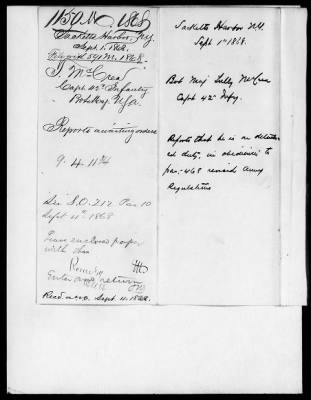 1868
Sacketts Harbor, N.Y.
Sept. 1. 1868.
T. McCrea
Capt 42d Infantry
Bvt Maj. U.S.A.
Reports awaiting orders
See S.O. 212 Par 10
Sept 11th 1868
enclosed paper
with this
Enter and return
Recd. A.G.O. Sept. 4. 1868.
Sacketts Harbor N.Y.
Sept 1st 1868.
Bvt Maj Tully McCrea
Capt 42d Infy.
Reports that he is on detach
ed duty, in obedience to
par. 468 revised Army
Regulations